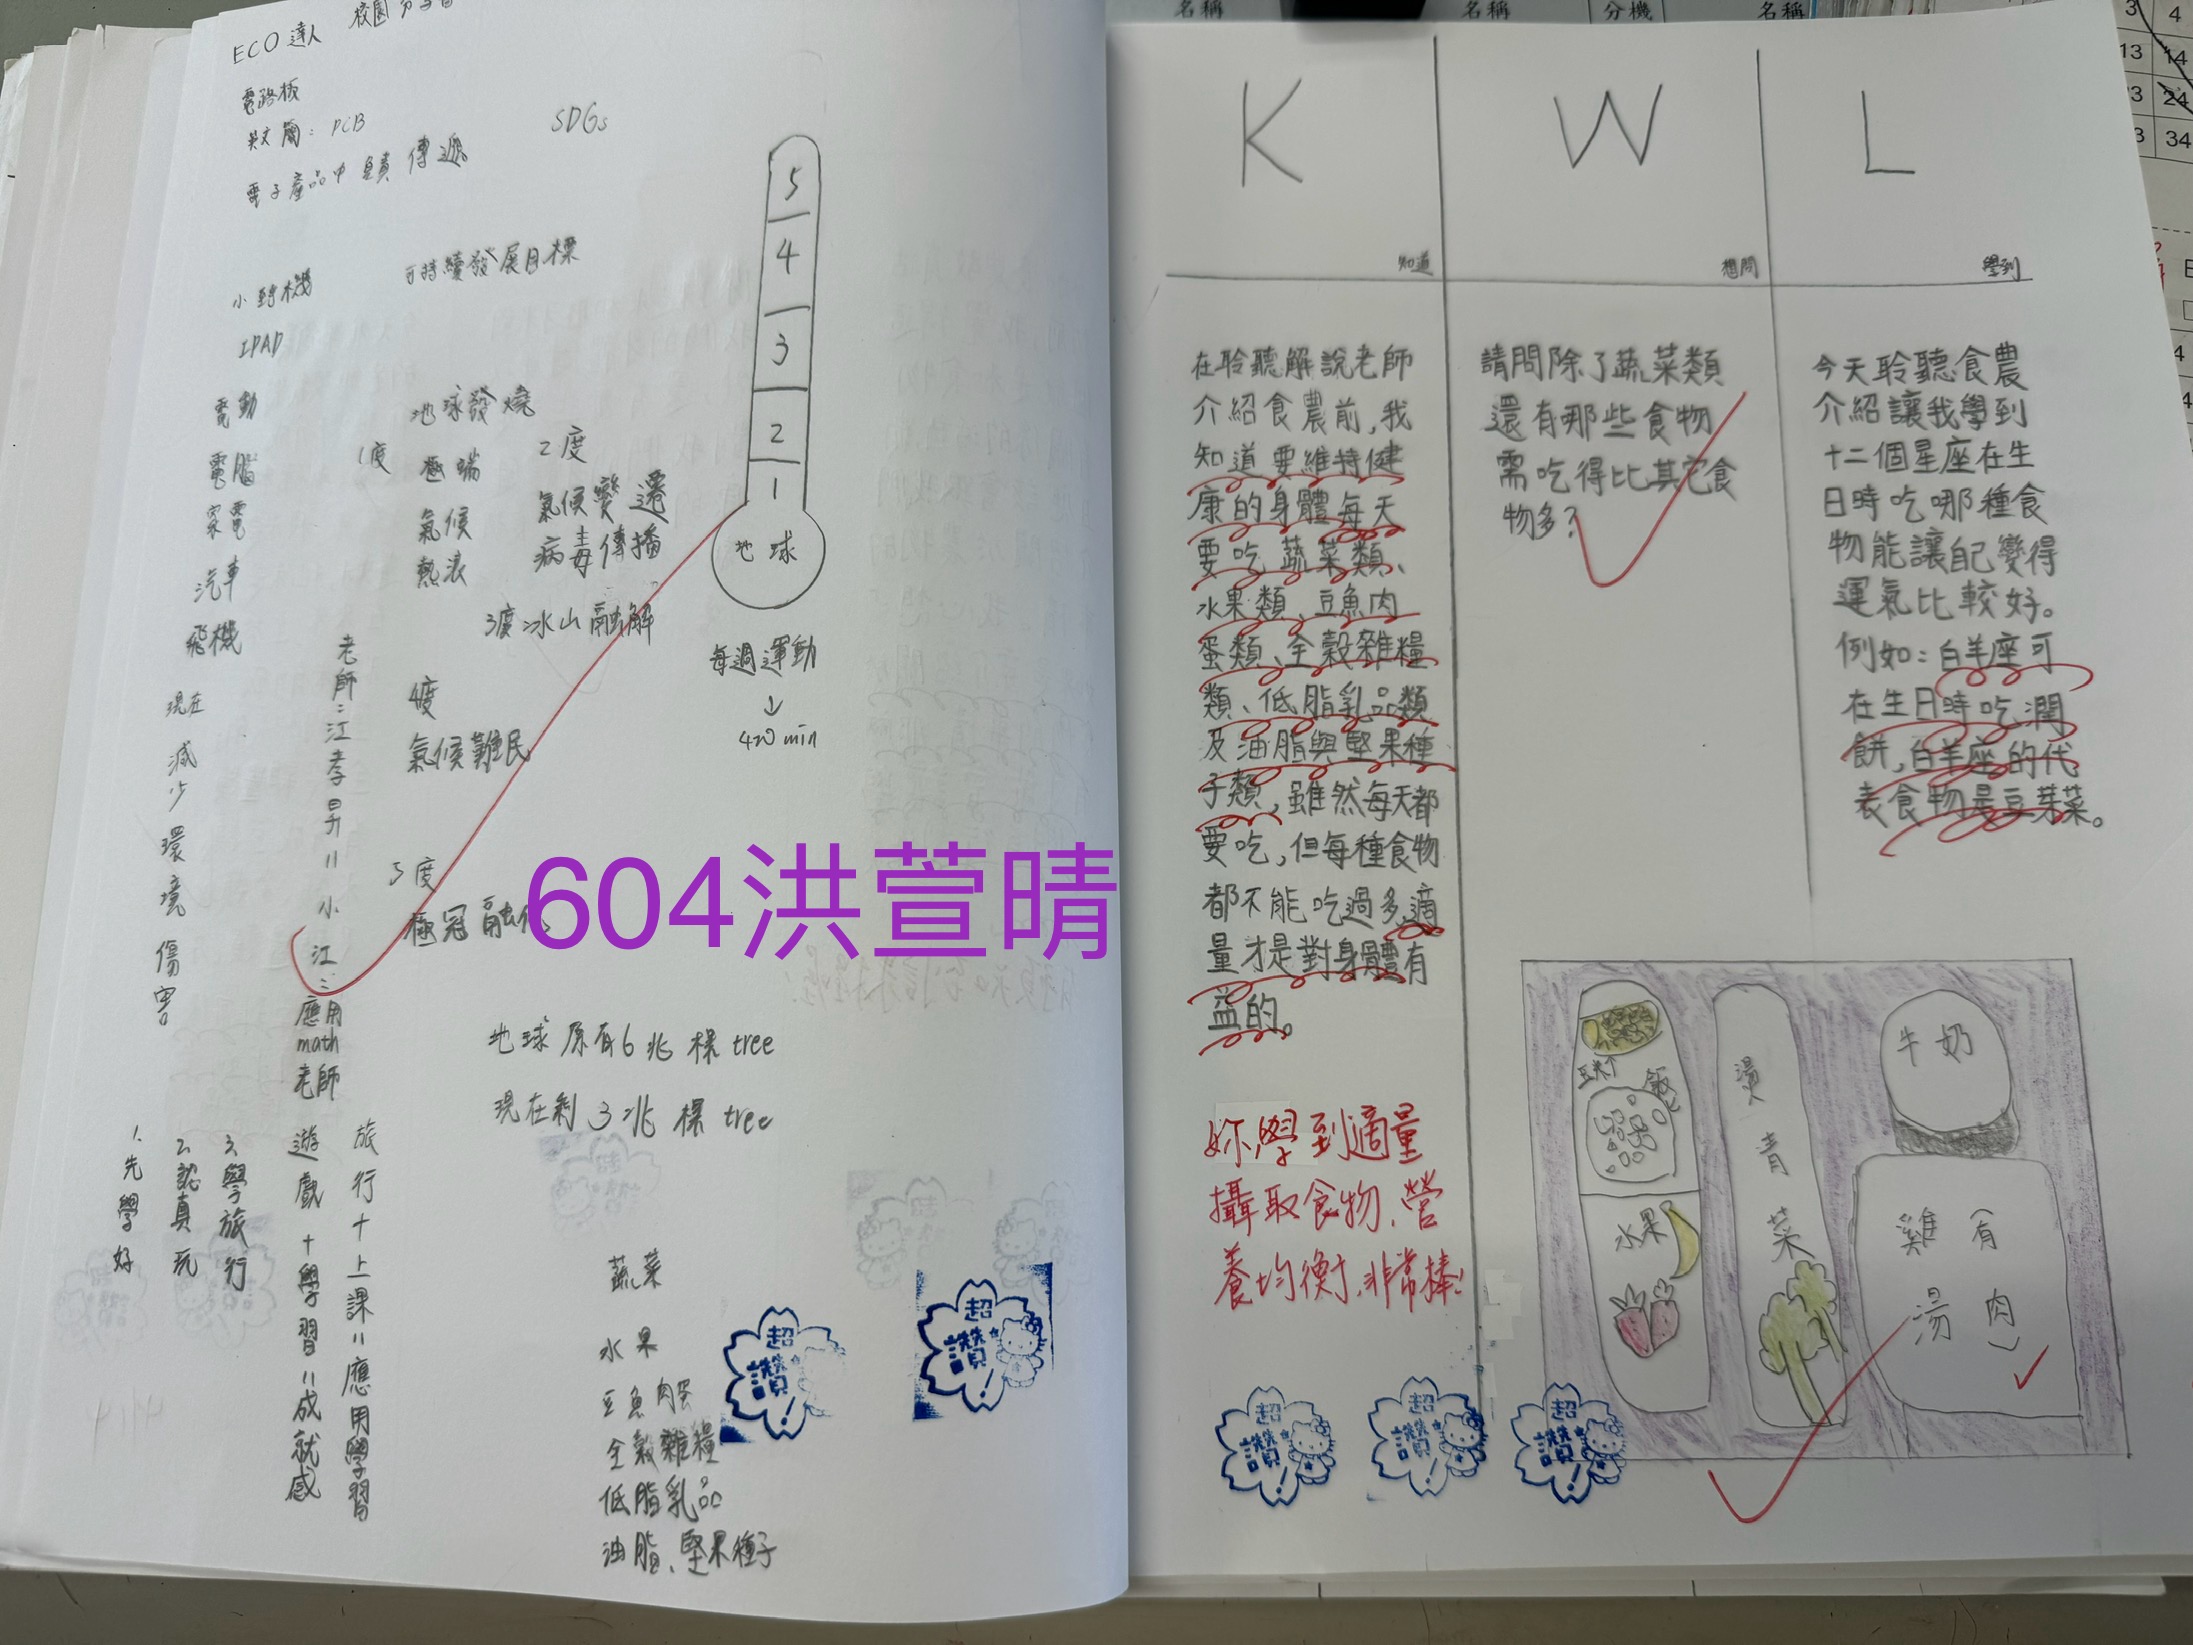 ECO達人 校園
電路板
英文簡：PCB
電子產品中負責傳遞
SDGs
可持續發展目標
小野機
IPAD
電動
電腦
家電
汽車
飛機
現在減少環境傷害
老師：江孝昇=小江：應用math老師
地球發燒
1度
極端
氣候
熱浪
2度
氣候變遷
病毒傳播
3度：冰山融解
4度
氣候難民
5度
極冠融化
5
4
3
2
1
地球
每週運動
↓
420 min
地球原有6兆棵tree
現在剩3兆棵tree
1.先學好
2.認真玩
3.學旅行
遊戲+學習=成就感
旅行+上課=應用學習
蔬菜
水果
豆魚肉蛋
全穀雜糧
低脂乳品
油脂、堅果種子
超讚!
超讚!
604洪萱晴
名稱
名稱
分機
名稱
K
知道
W
想問
L
學到
在聆聽解說老師
介紹食農前,我
知道要維持健
康的身體每天
要吃蔬菜類、
水果類、豆魚肉
蛋類、全穀雜糧
類、低脂乳品類
及油脂與堅果種
子類,雖然每天都
要吃,但每種食物
都不能吃過多,適
量才是對身體有
益的。
請問除了蔬菜類
還有哪些食物
需吃得比其它食
物多?
今天聆聽食農
介紹讓我學到
十二個星座在生
日時吃哪種食
物能讓自己變得
運氣比較好。
例如:白羊座可
在生日時吃潤
餅,白羊座的代
表食物是豆芽菜。
妳學到適量
攝取食物,營
養均衡,非常棒!
超讚!
超讚!
超讚!
玉米
飯
水果
燙青菜
牛奶
雞湯
(有肉)